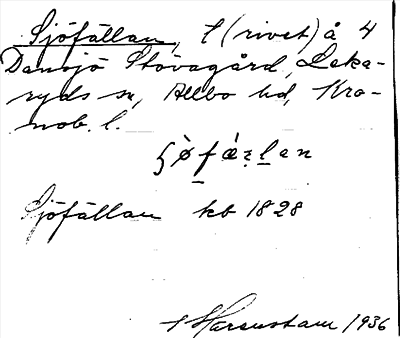 Sjöfällan, t (rivet) å 4
Dansjö Stövagård, Leka-
ryds sn, Allbo hd, Kro-
nob. l.
ʂöfæ̀ɽen
Sjöfällan kb 1828
Harsustam 1936